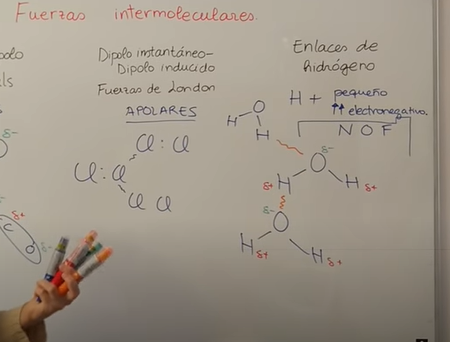 Fuerzas intermoleculares.
Dipolo instantáneo-
Dipolo inducido
Fuerzas de London
APOLARES
Cl : Cl
Cl : Cl
Cl Cl
Enlaces de
hidrógeno
H + pequeño
↑↑ electronegativo.
N O F
O
H
H
δ-
O
δ+ H
H δ+
δ-
O
H δ+
H δ+
δ-
δ+
C
O δ-